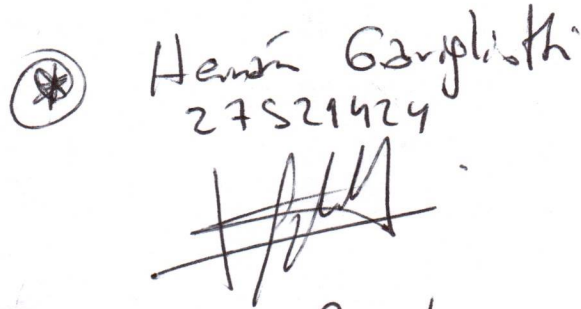 Hernán Garigliotti
27521424